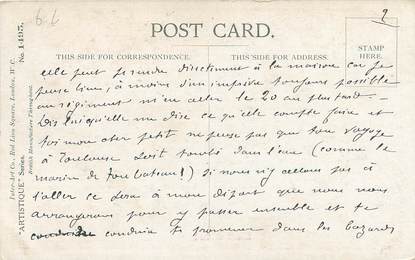 6.6
2
POST CARD.
THIS SIDE FOR CORRESPONDENCE.
THIS SIDE FOR ADDRESS.
STAMP
HERE.
"ARTISTIQUE" Series.
Inter-Art Co., Red Lion Square, London, W.C.
British Manufacture Throughout.
No. 1495.
elle peut se rendre directement à la maison car je
pense bien, à moins d'un imprévu toujours possible
au régiment m'en aller le 20 au plus tard -
Dis lui qu'elle me dise ce qu'elle compte faire et
toi mon cher petit ne pense pas que ton voyage
à Toulouse soit tombé dans l'eau (comme le
marin de ton bateau!) si nous n'y allons pas à
l'aller ce sera à mon départ que nous nous
arrangerons pour y passer ensemble et te
conduire te promener dans les bazards